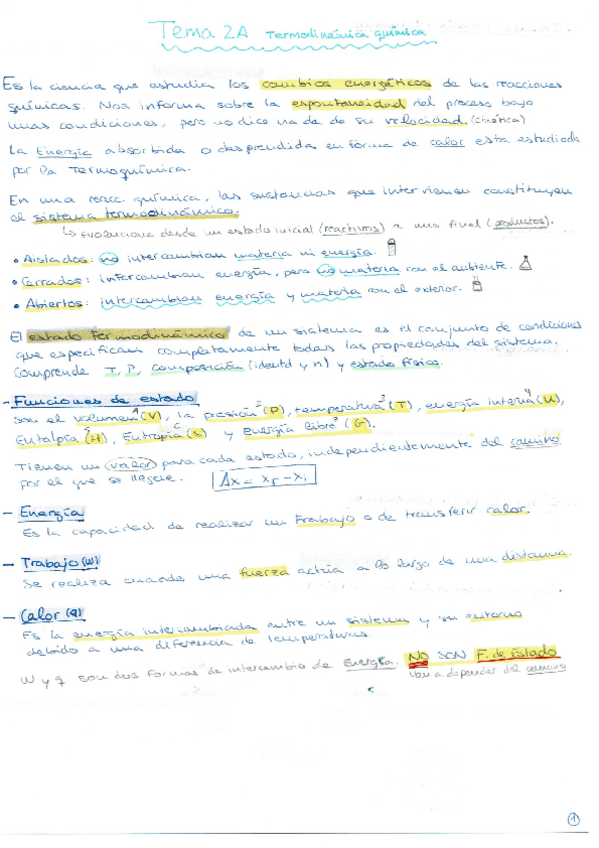 Tema 2A Termodinámica química
Es la ciencia que estudia los cambios energéticos de las reacciones
químicas. Nos informa sobre la espontaneidad del proceso bajo
unas condiciones, pero no dice nada de su velocidad. (cinética)
La Energía absorbida o desprendida en forma de calor esta estudiada
por la Termoquímica.
En una reacc. química, las sustancias que intervienen constituyen
el sistema termodinámico.
↳ evoluciona desde un estado inicial (reactivos) a uno final (productos).
• Aislados: no intercambian materia ni energía.
• Cerrados: intercambian energía, pero no materia con el ambiente.
• Abiertos: intercambian energía y materia con el exterior.
El estado termodinámico de un sistema es el conjunto de condiciones
que especifican completamente todas las propiedades del sistema.
Comprende T, P, composición (identd y n) y estado físico.
- Funciones de estado
son el volumen (V), la presión (P), temperatura (T), energía interna (U),
Entalpía (H), Entropía (S) y energía libre (G).
Tienen un valor para cada estado, independientemente del camino
por el que se llegue. Δx = xf - xi
- Energía
Es la capacidad de realizar un trabajo o de transferir calor.
- Trabajo (w)
Se realiza cuando una fuerza actúa a lo largo de una distancia.
- Calor (q)
Es la energía intercambiada entre un sistema y su entorno
debido a una diferencia de temperaturas.
W y q son dos formas de intercambio de Energía. NO SON F. de Estado
van a depender del camino
1